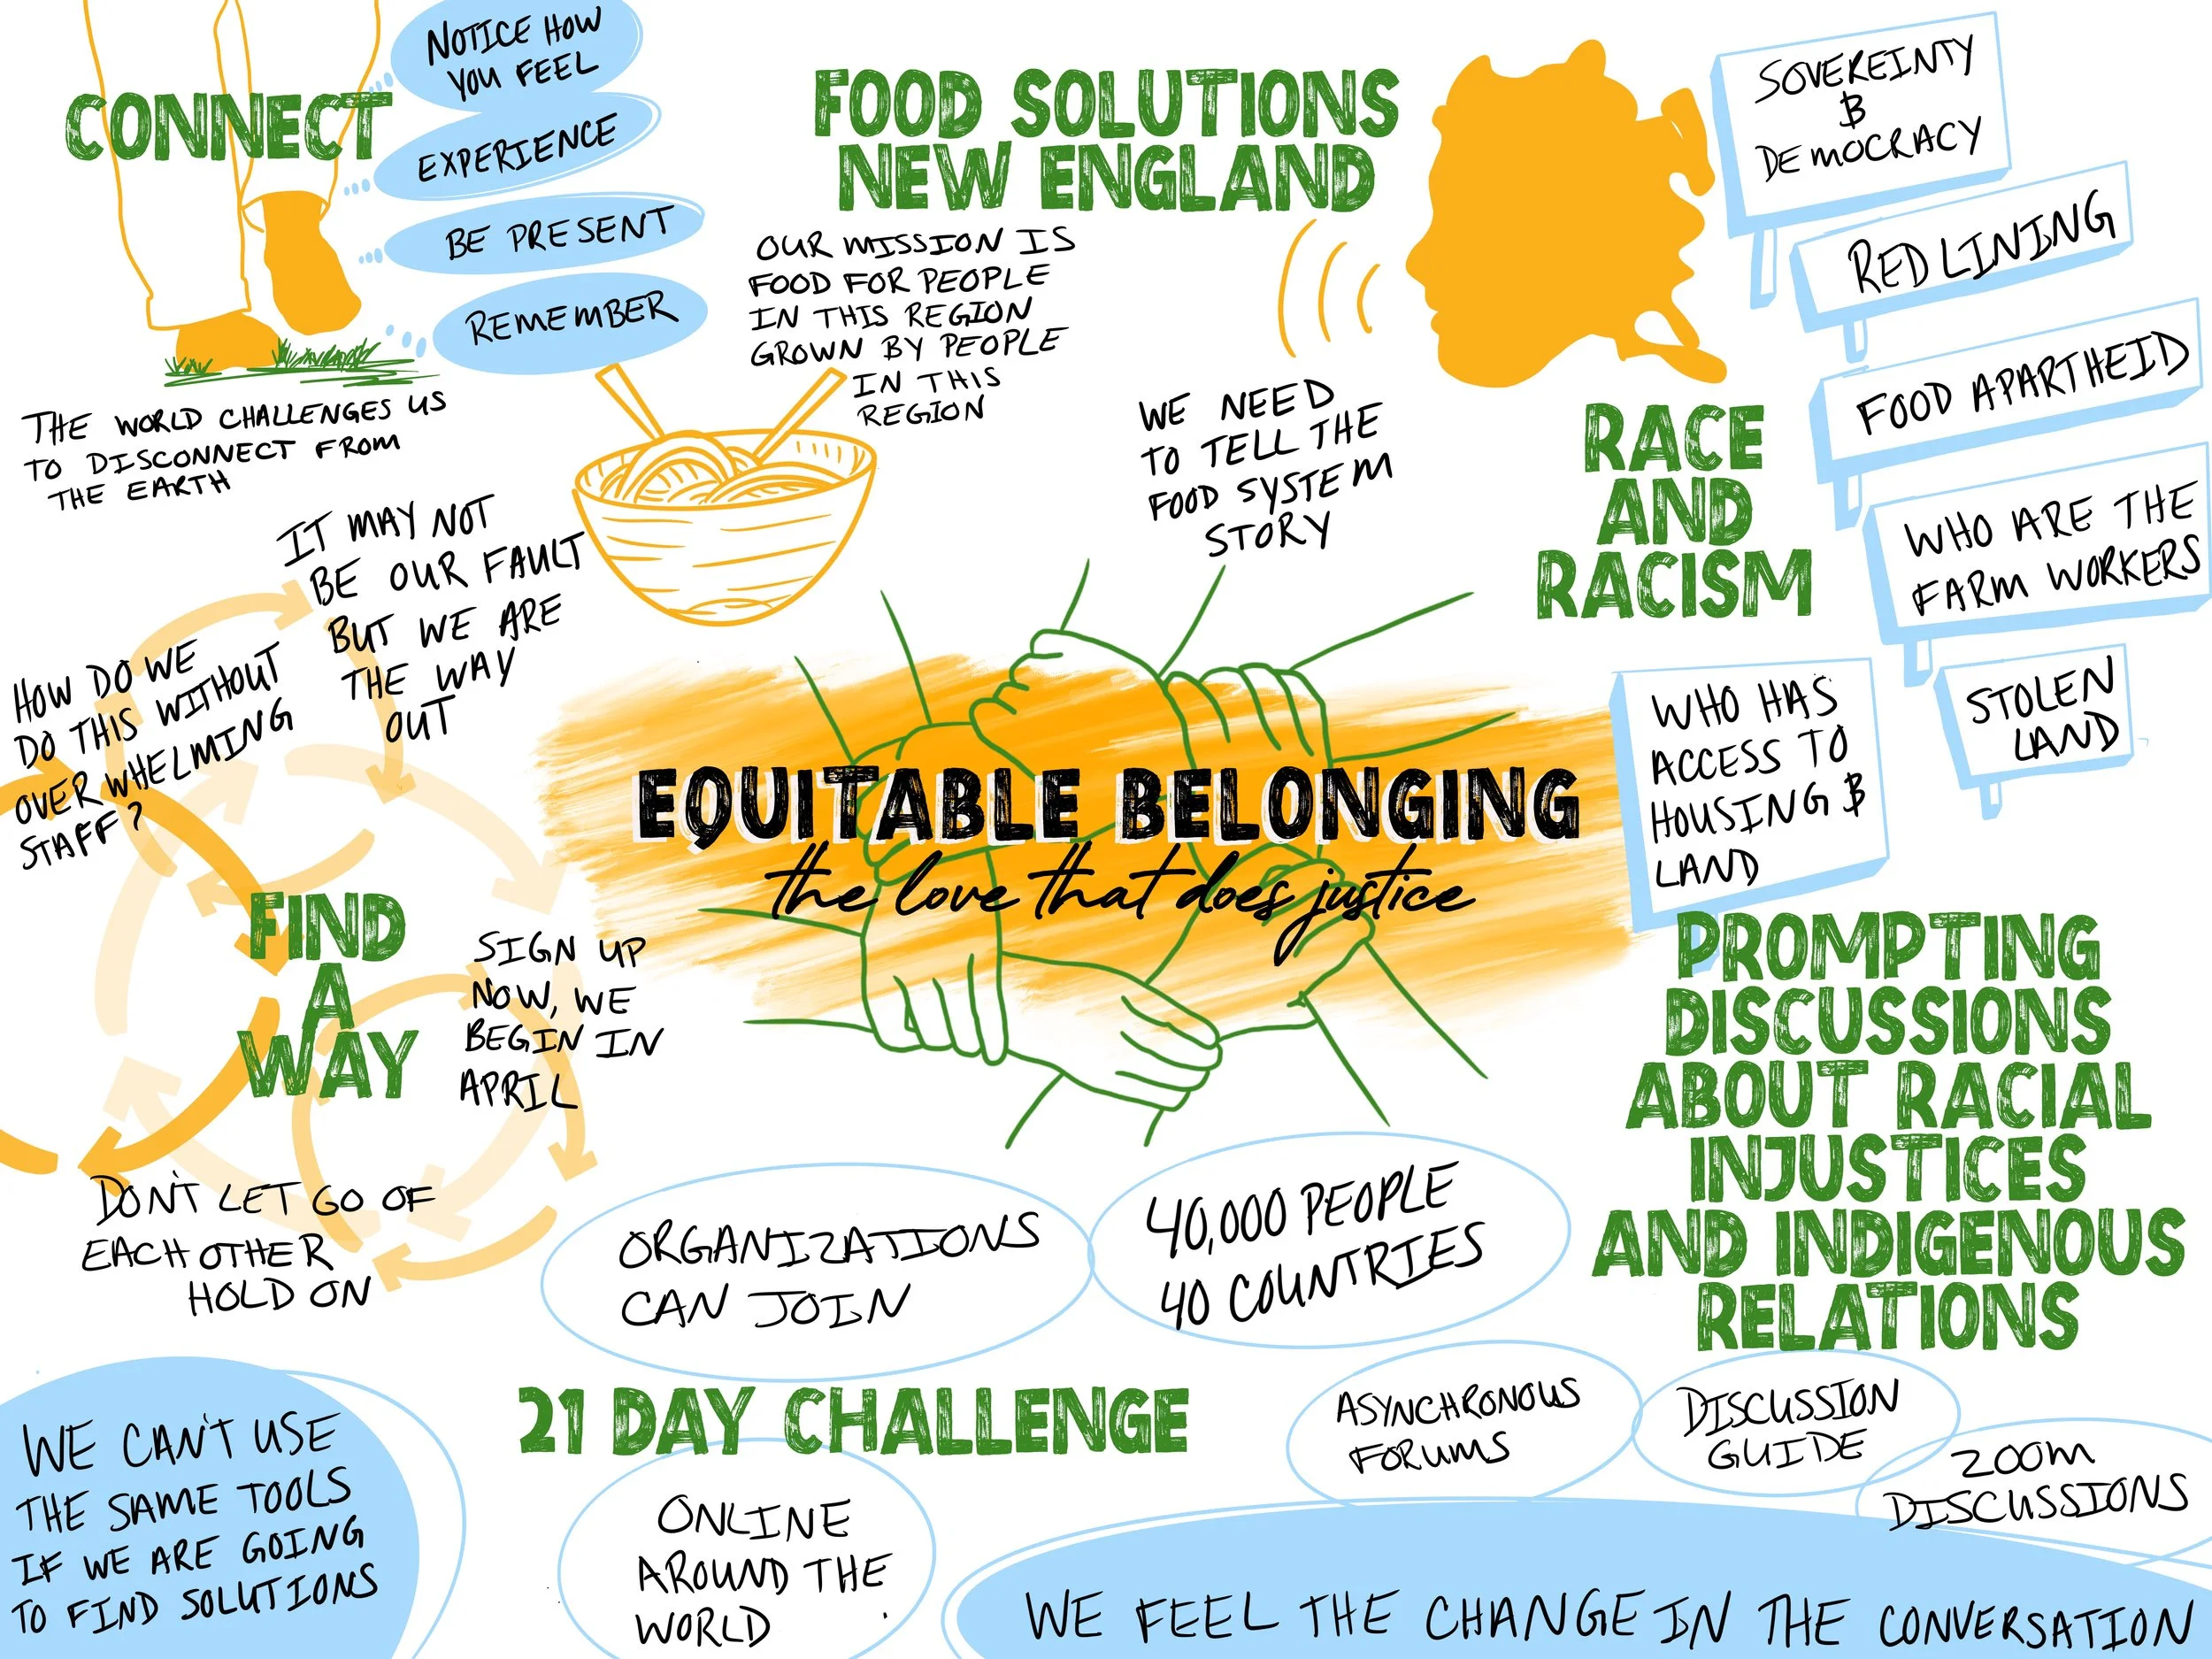 CONNECT
NOTICE HOW
YOU FEEL
EXPERIENCE
BE PRESENT
REMEMBER
THE WORLD CHALLENGES US
TO DISCONNECT FROM
THE EARTH
FOOD SOLUTIONS
NEW ENGLAND
OUR MISSION IS
FOOD FOR PEOPLE
IN THIS REGION
GROWN BY PEOPLE
IN THIS
REGION
WE NEED
TO TELL THE
FOOD SYSTEM
STORY
RACE
AND
RACISM
SOVEREINTY
&
DEMOCRACY
RED LINING
FOOD APARTHEID
WHO ARE THE
FARM WORKERS
STOLEN
LAND
WHO HAS
ACCESS TO
HOUSING &
LAND
IT MAY NOT
BE OUR FAULT
BUT WE ARE
THE WAY
OUT
HOW DO WE
DO THIS WITHOUT
OVER WHELMING
STAFF?
EQUITABLE BELONGING
the love that does justice
FIND
A
WAY
SIGN UP
NOW, WE
BEGIN IN
APRIL
DON'T LET GO OF
EACH OTHER
HOLD ON
PROMPTING
DISCUSSIONS
ABOUT RACIAL
INJUSTICES
AND INDIGENOUS
RELATIONS
ORGANIZATIONS
CAN JOIN
40,000 PEOPLE
40 COUNTRIES
21 DAY CHALLENGE
ONLINE
AROUND THE
WORLD
ASYNCHRONOUS
FORUMS
DISCUSSION
GUIDE
ZOOM
DISCUSSIONS
WE CAN'T USE
THE SAME TOOLS
IF WE ARE GOING
TO FIND SOLUTIONS
WE FEEL THE CHANGE IN THE CONVERSATION